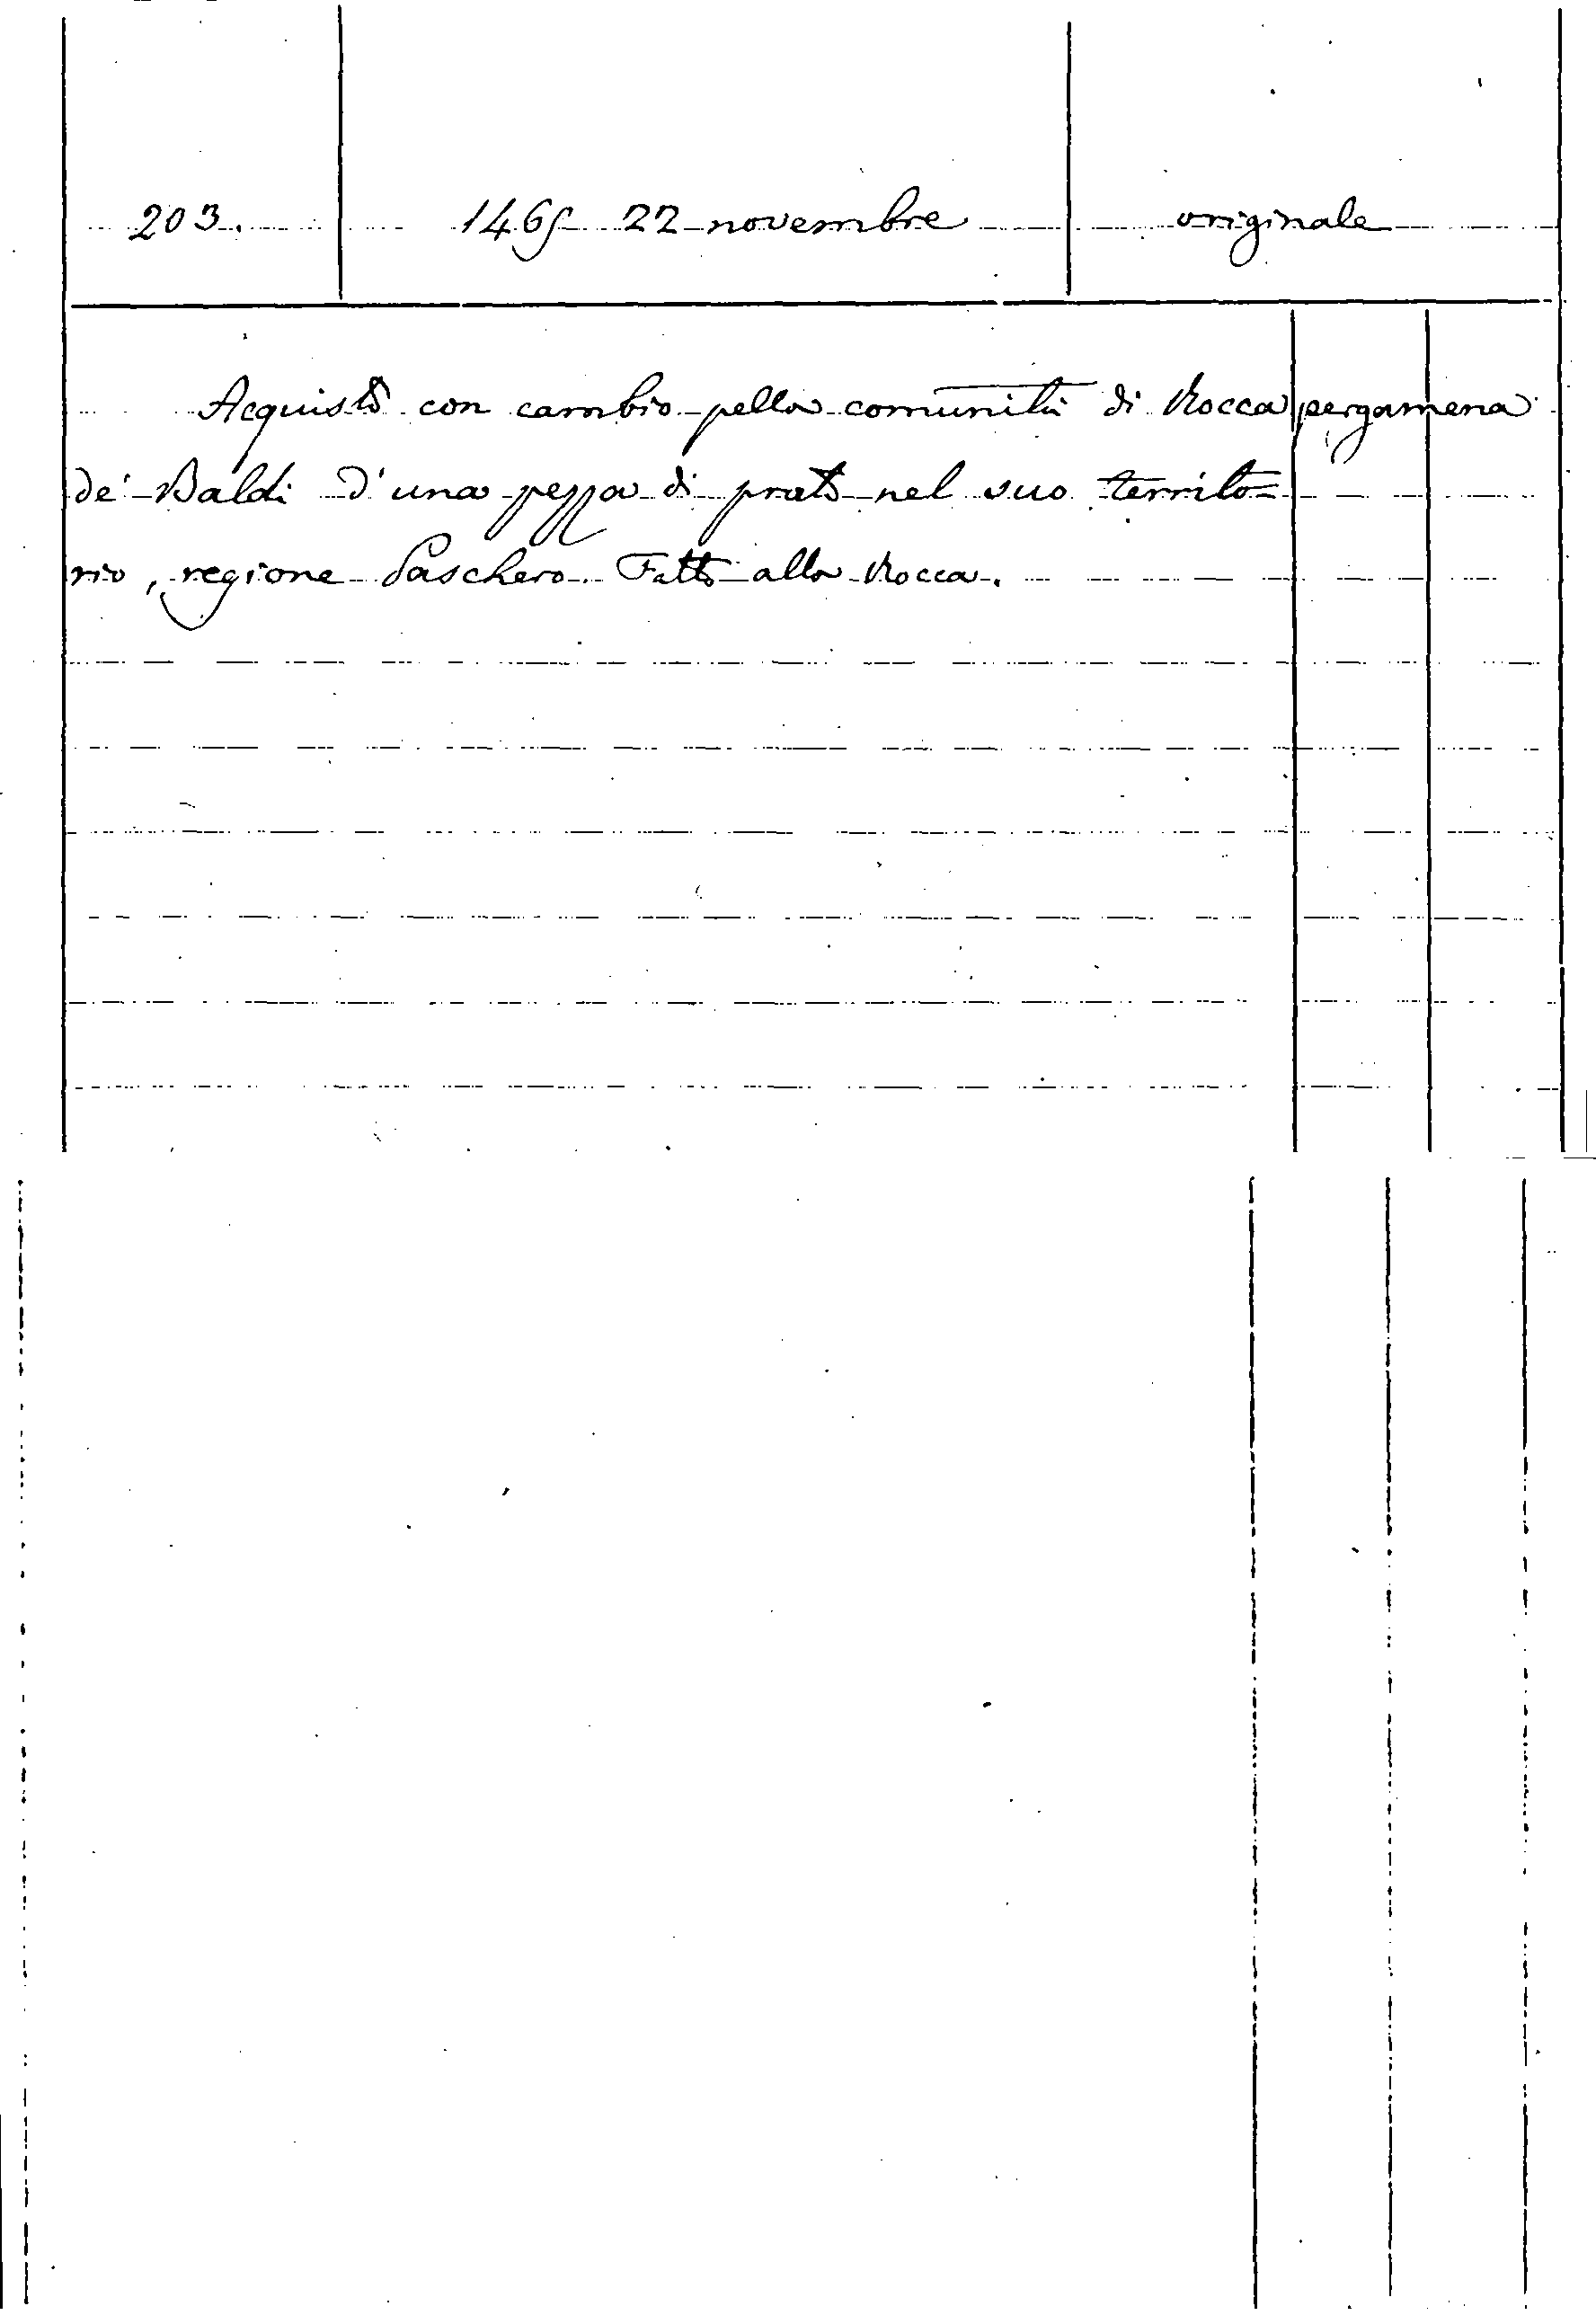 203. 1465 22 novembre originale
Acquisto con cambio pella comunità di Rocca pergamena
de' Baldi d'una pezza di prato nel suo territo=
rio, regione Paschero. Fatto alla Rocca.